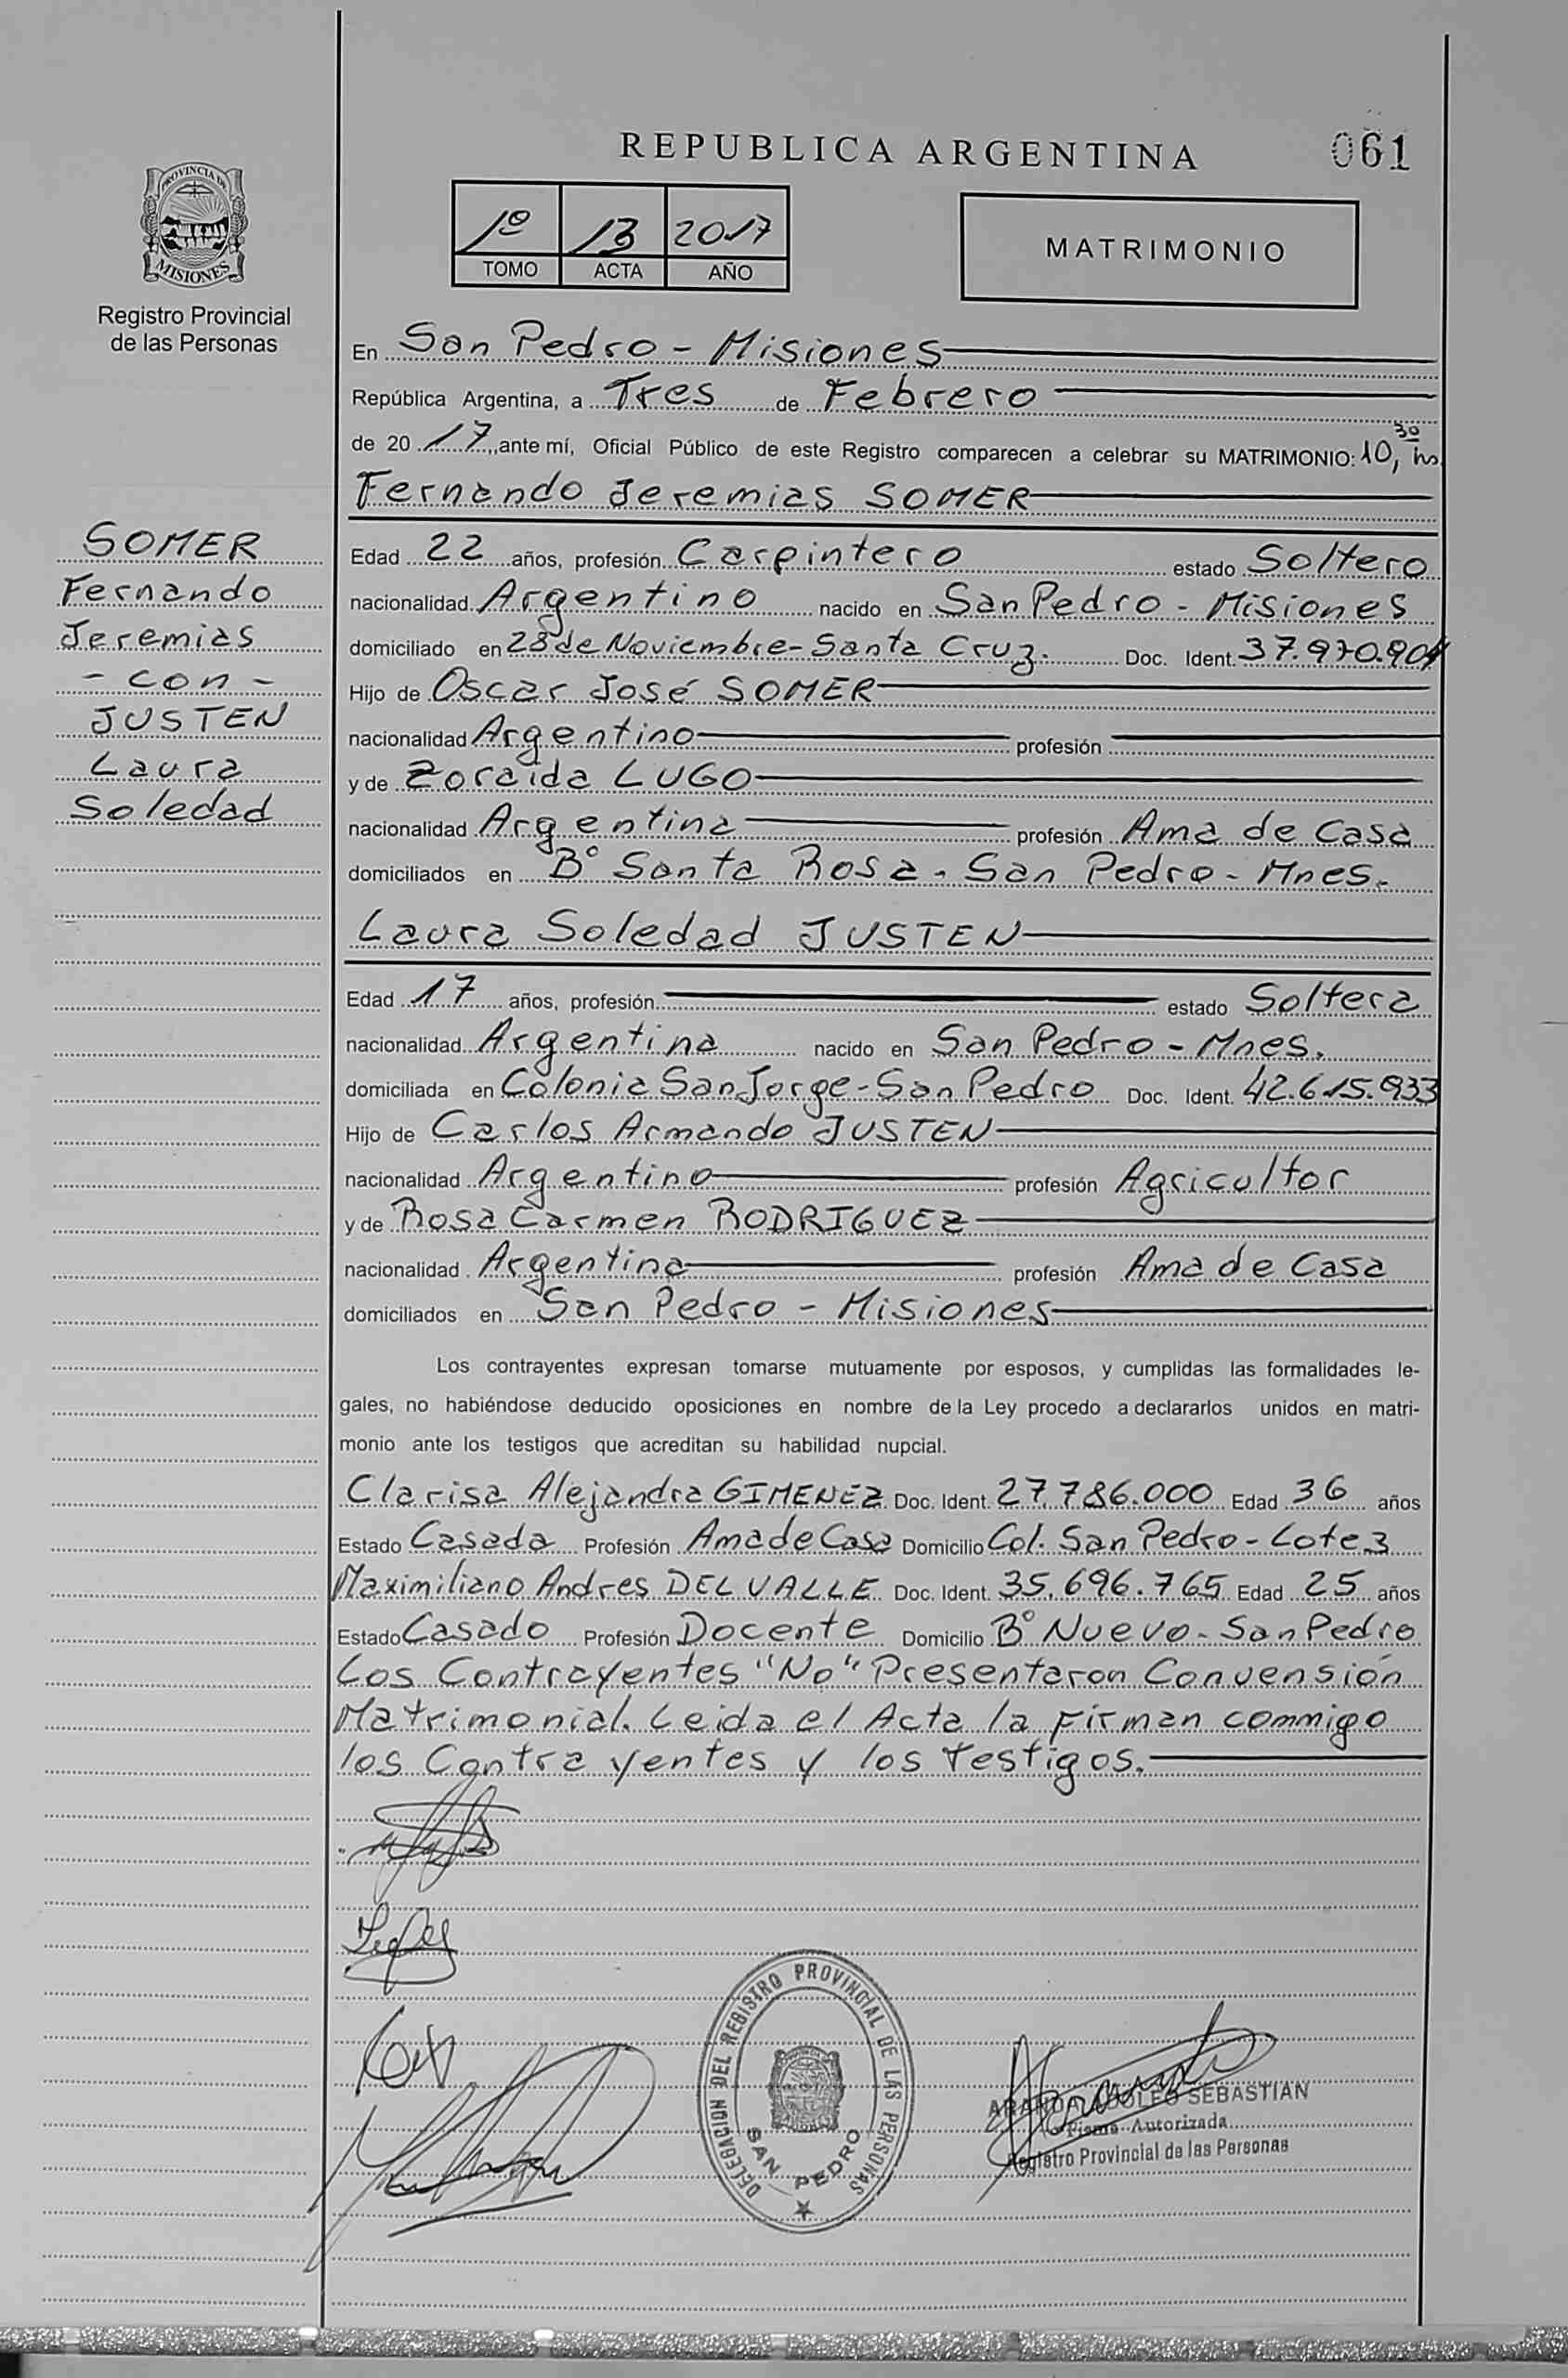 REPUBLICA ARGENTINA
061
PROVINCIA DE
MISIONES
Registro Provincial
de las Personas
1º 13 2017
TOMO ACTA AÑO
MATRIMONIO
En San Pedro - Misiones
República Argentina, a Tres de Febrero
de 20 17, ante mí, Oficial Público de este Registro comparecen a celebrar su MATRIMONIO: 10,30 hs
Fernando Jeremias SOMER
SOMER
Fernando
Jeremias
- con -
JUSTEN
Laura
Soledad
Edad 22 años, profesión Carpintero estado Soltero
nacionalidad Argentino nacido en San Pedro - Misiones
domiciliado en 28 de Noviembre - Santa Cruz. Doc. Ident. 37.970.904
Hijo de Oscar José SOMER
nacionalidad Argentino profesión
y de Zoraida LUGO
nacionalidad Argentina profesión Ama de Casa
domiciliados en B° Santa Rosa - San Pedro - Mnes.
Laura Soledad JUSTEN
Edad 17 años, profesión estado Soltera
nacionalidad Argentina nacido en San Pedro - Mnes.
domiciliada en Colonia San Jorge - San Pedro Doc. Ident. 42.615.933
Hijo de Carlos Armando JUSTEN
nacionalidad Argentino profesión Agricultor
y de Rosa Carmen RODRIGUEZ
nacionalidad Argentina profesión Ama de Casa
domiciliados en San Pedro - Misiones
Los contrayentes expresan tomarse mutuamente por esposos, y cumplidas las formalidades le-
gales, no habiéndose deducido oposiciones en nombre de la Ley procedo a declararlos unidos en matri-
monio ante los testigos que acreditan su habilidad nupcial.
Clarisa Alejandra GIMENEZ Doc. Ident. 27.786.000 Edad 36 años
Estado Casada Profesión Ama de Casa Domicilio Col. San Pedro - Lote 3
Maximiliano Andres DEL VALLE Doc. Ident. 35.696.765 Edad 25 años
Estado Casado Profesión Docente Domicilio B° Nuevo - San Pedro
Los Contrayentes "No" Presentaron Convensión
Matrimonial. Leida el Acta la Firman commigo
los Contra yentes y los Testigos.
DELEGACION DEL REGISTRO PROVINCIAL DE LAS PERSONAS
SAN PEDRO
SEBASTIAN
Firma Autorizada
Registro Provincial de las Personas